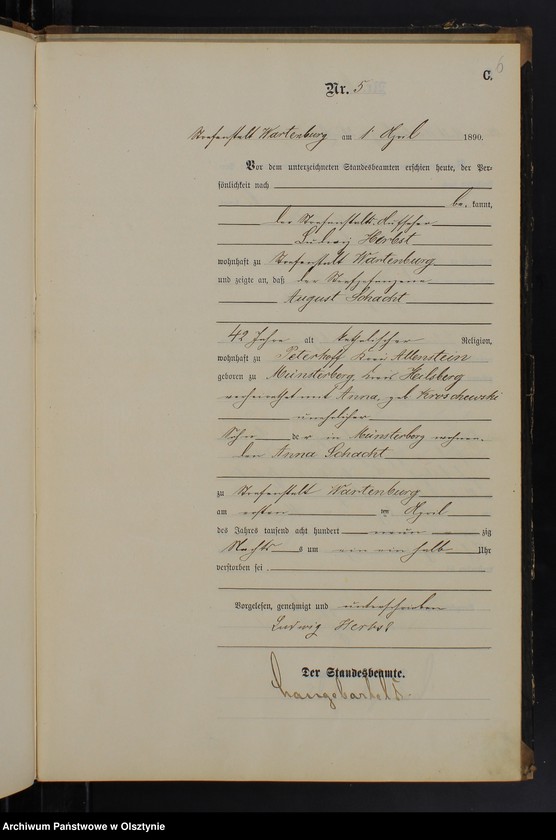 C. 6
Nr. 5
Strafanstalt Wartenburg am 1 April 1890.
Vor dem unterzeichneten Standesbeamten erschien heute, der Per-
sönlichkeit nach
be kannt,
der Strafanstalts-Aufseher
Ludwig Herbst
wohnhaft zu Strafanstalt Wartenburg
und zeigte an, daß der Strafgefangene
August Schacht
42 Jahre alt katholischer Religion,
wohnhaft zu Peterhof Kreis Allenstein
geboren zu Münsterberg, Kreis Heilsberg
verheirathet mit Anna, geb Kroschewski
unehelicher
Sohn der in Münsterberg wohnen-
den Anna Schacht
zu Strafanstalt Wartenburg
am ersten ten April
des Jahres tausend acht hundert neun zig
Nachts s um ein ein halb Uhr
verstorben sei.
Vorgelesen, genehmigt und unterschrieben
Ludwig Herbst
Der Standesbeamte.
Archiwum Państwowe w Olsztynie